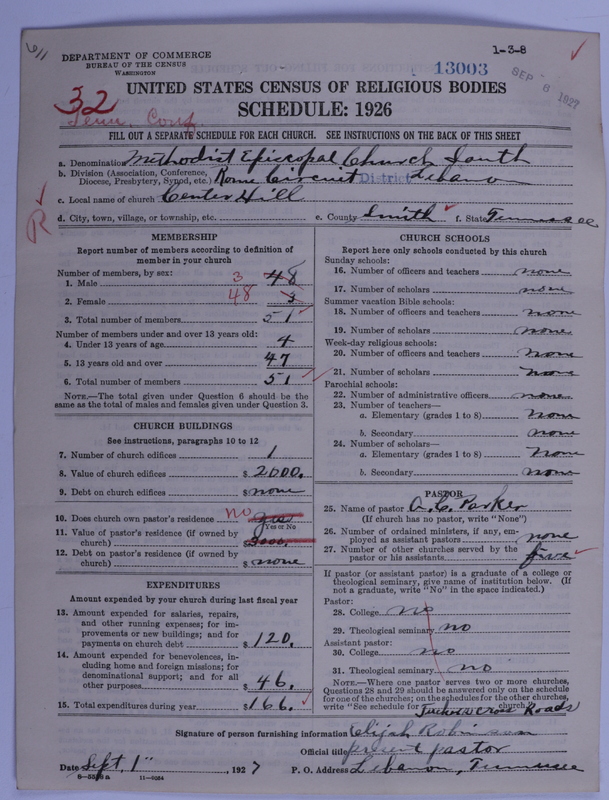 611
1-3-8
DEPARTMENT OF COMMERCE
BUREAU OF THE CENSUS
WASHINGTON
13003
SEP 8 1927
32
Tenn. Conf.
UNITED STATES CENSUS OF RELIGIOUS BODIES
SCHEDULE: 1926
FILL OUT A SEPARATE SCHEDULE FOR EACH CHURCH. SEE INSTRUCTIONS ON THE BACK OF THIS SHEET
a. Denomination Methodist Episcopal Church South
b. Division (Association, Conference, Diocese, Presbytery, Synod, etc.) Rome Circuit District Lebanon
c. Local name of church Center Hill
d. City, town, village, or township, etc. e. County Smith f. State Tennessee
R
MEMBERSHIP
Report number of members according to definition of member in your church
Number of members, by sex:
1. Male 3 48
2. Female 48 3
3. Total number of members 51
Number of members under and over 13 years old:
4. Under 13 years of age 4
5. 13 years old and over 47
6. Total number of members 51
NOTE.—The total given under Question 6 should be the same as the total of males and females given under Question 3.
CHURCH BUILDINGS
See instructions, paragraphs 10 to 12
7. Number of church edifices 1
8. Value of church edifices $ 2000.
9. Debt on church edifices $ none
10. Does church own pastor's residence no yes
Yes or No
11. Value of pastor's residence (if owned by church) $
12. Debt on pastor's residence (if owned by church) $ none
EXPENDITURES
Amount expended by your church during last fiscal year
13. Amount expended for salaries, repairs, and other running expenses; for improvements or new buildings; and for payments on church debt $ 120.
14. Amount expended for benevolences, including home and foreign missions; for denominational support; and for all other purposes $ 46.
15. Total expenditures during year $ 166.
CHURCH SCHOOLS
Report here only schools conducted by this church
Sunday schools:
16. Number of officers and teachers none
17. Number of scholars none
Summer vacation Bible schools:
18. Number of officers and teachers none
19. Number of scholars none
Week-day religious schools:
20. Number of officers and teachers none
21. Number of scholars none
Parochial schools:
22. Number of administrative officers none
23. Number of teachers—
a. Elementary (grades 1 to 8) none
b. Secondary none
24. Number of scholars—
a. Elementary (grades 1 to 8) none
b. Secondary none
PASTOR
25. Name of pastor A. C. Parker
(If church has no pastor, write "None")
26. Number of ordained ministers, if any, employed as assistant pastors none
27. Number of other churches served by the pastor or his assistants five
If pastor (or assistant pastor) is a graduate of a college or theological seminary, give name of institution below. (If not a graduate, write "No" in the space indicated.)
Pastor:
28. College no
29. Theological seminary no
Assistant pastor:
30. College no
31. Theological seminary no
NOTE.—Where one pastor serves two or more churches, Questions 28 and 29 should be answered only on the schedule for one of the churches; on the schedules for the other churches, write "See schedule for church."
Roads
Signature of person furnishing information Elijah Robinson
Official title present pastor
Date Sept. 1" , 1927 P. O. Address Lebanon, Tennessee
11—9054